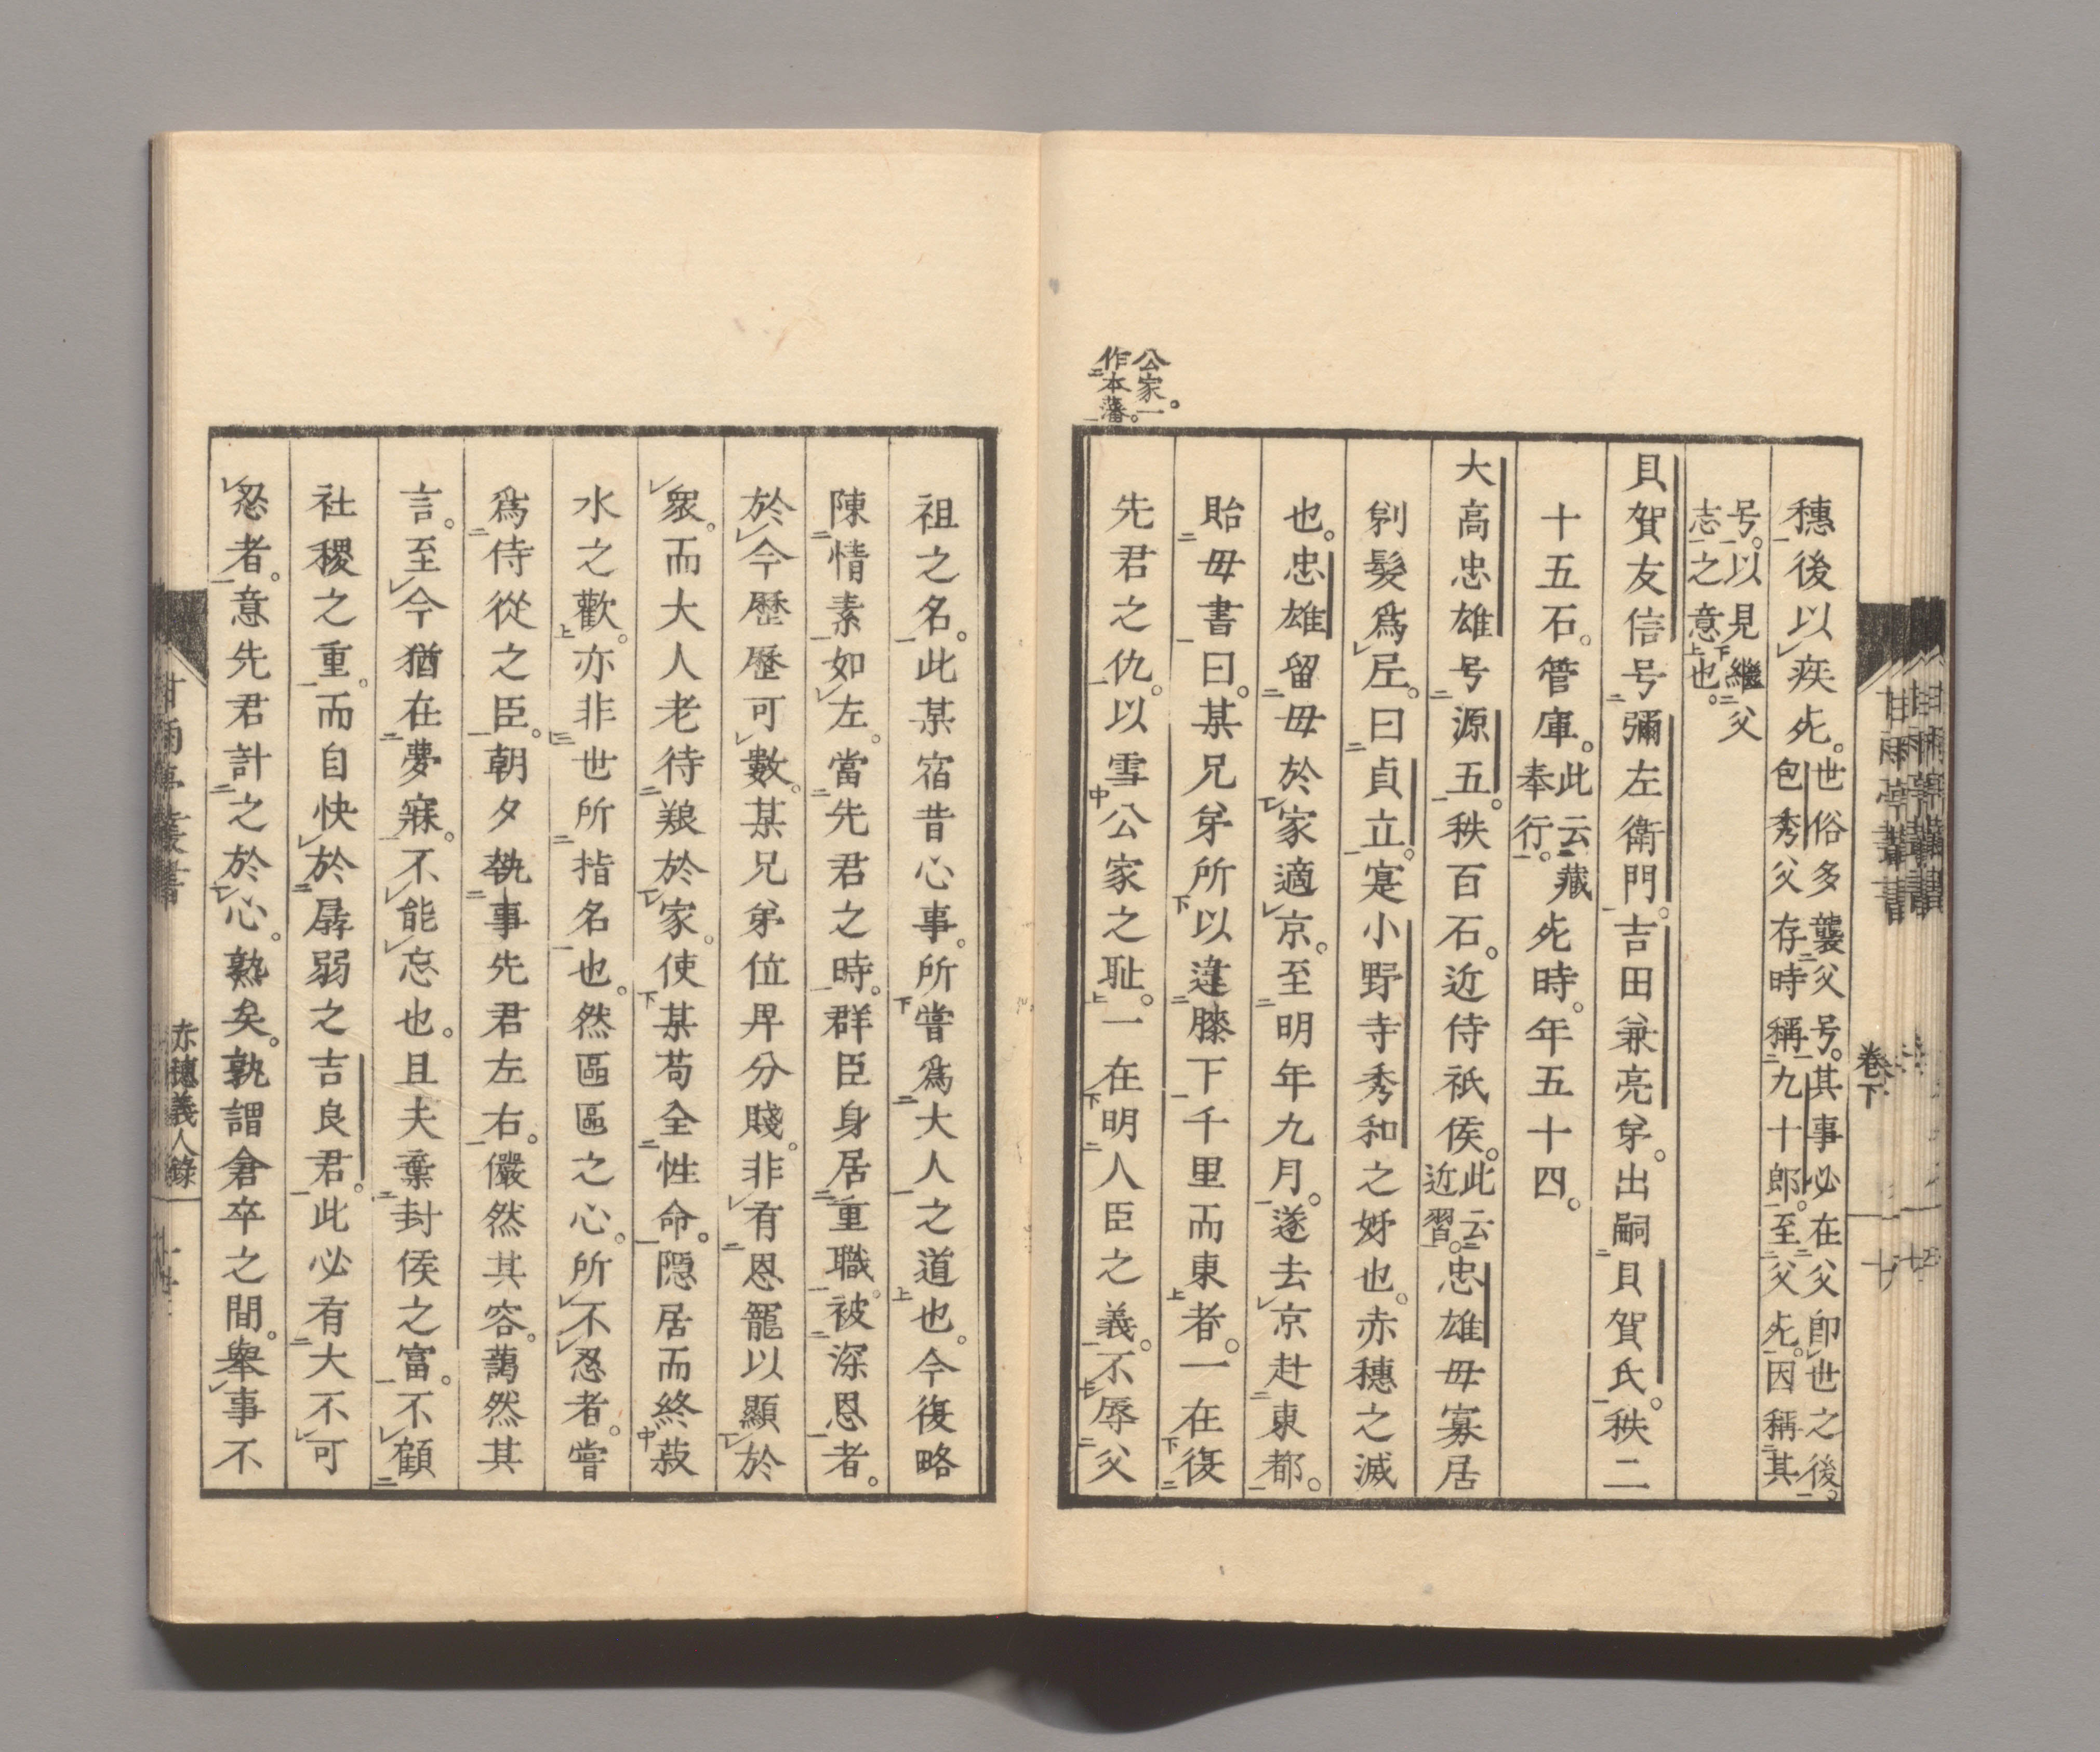 公家一
作本藩
穗後以疾死。世俗多襲父号。其事必在父卽世之後。
包秀父存時稱九十郎。至父死。因稱其
号。以見繼父
志之意也。
貝賀友信号彌左衛門。吉田兼亮弟。出嗣貝賀氏。秩二
十五石。管庫。此云藏
奉行。死時。年五十四。
大高忠雄号源五。秩百石。近侍祇侯。此云
近習。忠雄母寡居
剃髮爲尼。曰貞立。寔小野寺秀和之姊也。赤穗之滅
也。忠雄留母於家適京。至明年九月。遂去京赴東都。
貽母書曰。某兄弟所以違膝下千里而東者。一在復
先君之仇。以雪公家之耻。一在明人臣之義。不辱父
卷下
祖之名。此某宿昔心事。所嘗爲大人之道也。今復略
陳情素如左。當先君之時。群臣身居重職。被深恩者。
於今歷歷可數。某兄弟位卑分賤。非有恩寵以顯於
衆。而大人老待艱於家。使某苟全性命。隱居而終菽
水之歡。亦非世所指名也。然區區之心。所不忍者。嘗
爲侍從之臣。朝夕執事先君左右。儼然其容。藹然其
言。至今猶在夢寐。不能忘也。且夫棄封侯之富。不顧
社稷之重。而自快於孱弱之吉良君。此必有大不可
忍者。意先君計之於心。熟矣。孰謂倉卒之間。舉事不
甘雨亭叢書
赤穗義人錄